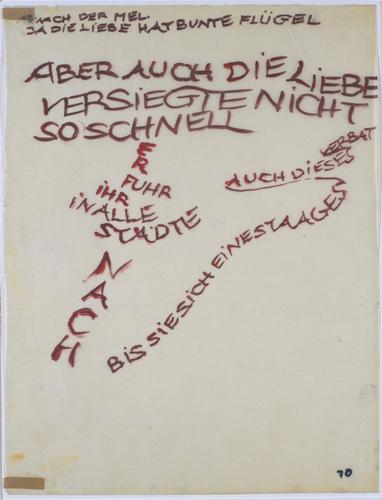 NACH DER MEL.
JA DIE LIEBE HAT BUNTE FLÜGEL
ABER AUCH DIE LIEBE
VERSIEGTE NICHT
SO SCHNELL
ER
FUHR
IHR
IN ALLE
STÄDTE
NACH
BIS SIE SICH EINES TAAGES
AUCH DIESES
VERBAT
70